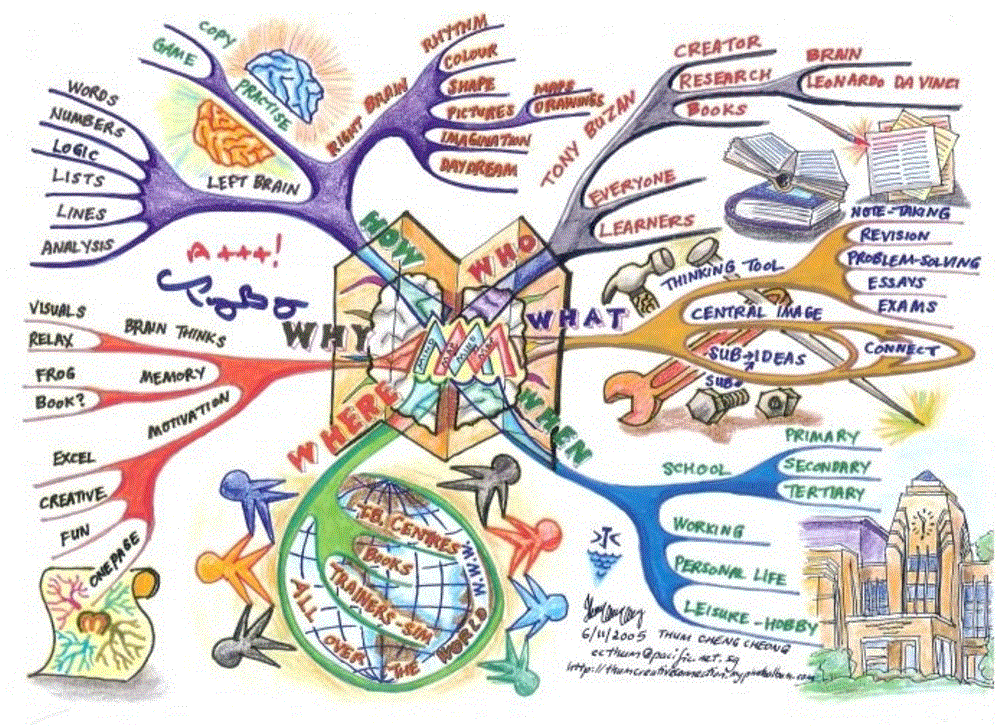 COPY
GAME
PRACTISE
LEFT BRAIN
WORDS
NUMBERS
LOGIC
LISTS
LINES
ANALYSIS
RIGHT BRAIN
RHYTHM
COLOUR
SHAPE
PICTURES
MAPS
DRAWINGS
IMAGINATION
DAYDREAM
HOW
WHO
TONY BUZAN
CREATOR
RESEARCH
BRAIN
LEONARDO DA VINCI
BOOKS
EVERYONE
LEARNERS
WHAT
THINKING TOOL
NOTE-TAKING
REVISION
PROBLEM-SOLVING
ESSAYS
EXAMS
CENTRAL IMAGE
SUB→IDEAS
SUB
CONNECT
A+++!
WHY
BRAIN THINKS
VISUALS
RELAX
MEMORY
FROG
BOOK?
MOTIVATION
EXCEL
CREATIVE
FUN
ONE PAGE
WHERE
T.B. CENTRES
W.W.W.
BOOKS
TRAINERS-SIM
ALL OVER THE WORLD
WHEN
SCHOOL
PRIMARY
SECONDARY
TERTIARY
WORKING
PERSONAL LIFE
LEISURE-HOBBY
6/11/2005 THUM CHENG CHEONG
ccthum@pacific.net.sg